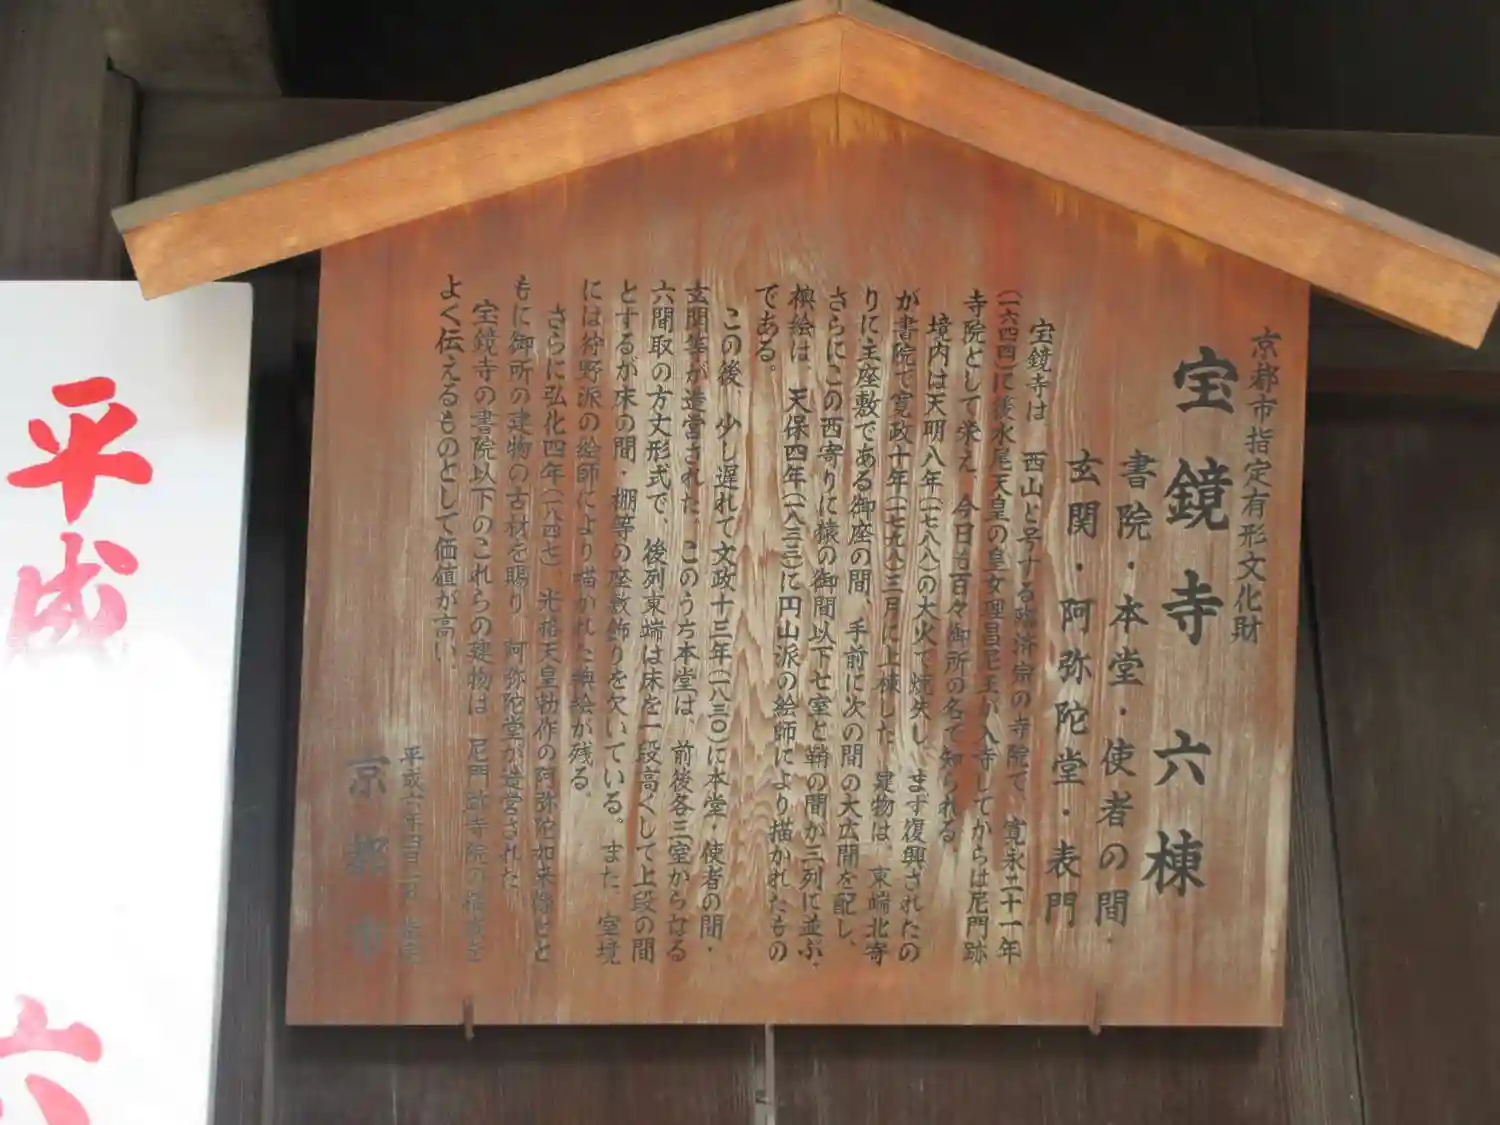 京都市指定有形文化財
宝鏡寺 六棟
書院・本堂・使者の間・
玄関・阿弥陀堂・表門
宝鏡寺は、西山と号する臨済宗の寺院で、寛永二十一年
(一六四四)に後水尾天皇の皇女理昌尼王が入寺してからは尼門跡
寺院として栄え、今日も百々御所の名で知られる。
境内は天明八年(一七八八)の大火で焼失し、まず復興されたの
が書院で寛政十年(一七九八)三月に上棟した。建物は、東端北寄
りに主座敷である御座の間、手前に次の間の大広間を配し、
さらにこの西寄りに猿の御間以下七室と鞘の間が三列に並ぶ。
襖絵は、天保四年(一八三三)に円山派の絵師により描かれたもの
である。
この後、少し遅れて文政十三年(一八三〇)に本堂・使者の間・
玄関等が造営された。このうち本堂は、前後各三室からなる
六間取の方丈形式で、後列東端は床を一段高くして上段の間
とするが床の間・棚等の座敷飾りを欠いている。また、室境
には狩野派の絵師により描かれた襖絵が残る。
さらに弘化四年(一八四七)、光格天皇勅作の阿弥陀如来像とと
もに御所の建物の古材を賜り、阿弥陀堂が造営された。
宝鏡寺の書院以下のこれらの建物は、尼門跡寺院の構成を
よく伝えるものとして価値が高い。
平成六年四月一日 指定
京都市
平成
六